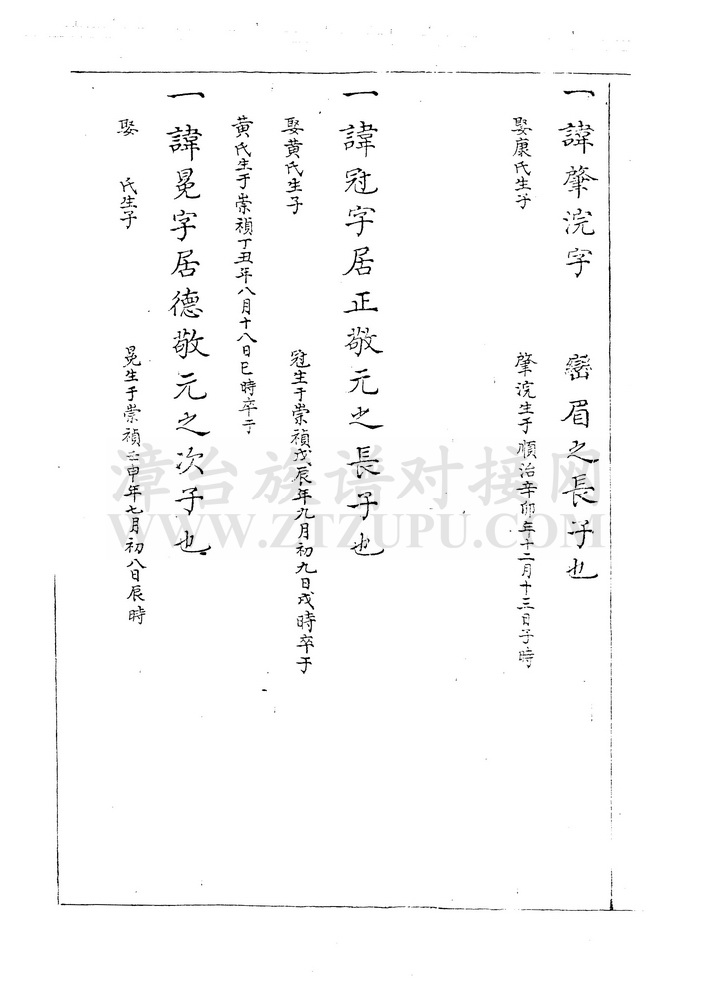 一諱肇浣字　巒眉之長子也
娶康氏生子　肇浣生于順治辛卯年十二月十三日子時
一諱冠字居正敬元之長子也
娶黃氏生子　冠生于崇禎戊辰年九月初九日戌時卒于
黃氏生于崇禎丁丑年八月十八日巳時卒于
一諱冕字居德敬元之次子也
娶　氏生子　冕生于崇禎壬申年七月初八日辰時
漳台族谱对接网
WWW.ZTZUPU.COM